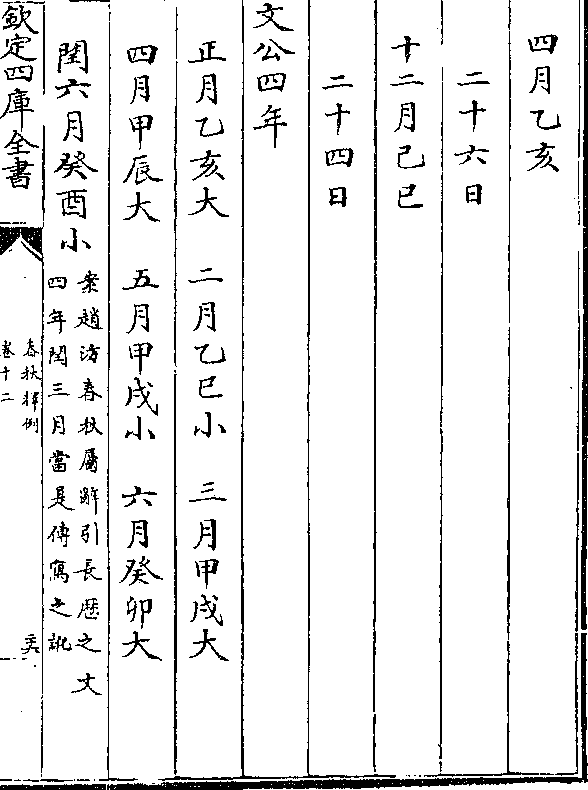 四月乙亥
二十六日
十二月己巳
二十四日
文公四年
正月乙亥大　二月乙巳小　三月甲戌大
四月甲辰大　五月甲戌小　六月癸卯大
閏六月癸酉小
案趙汸春秋屬辭引長歴之文
四年閏三月當是傳寫之訛
欽定四庫全書
春秋釋例
卷十二